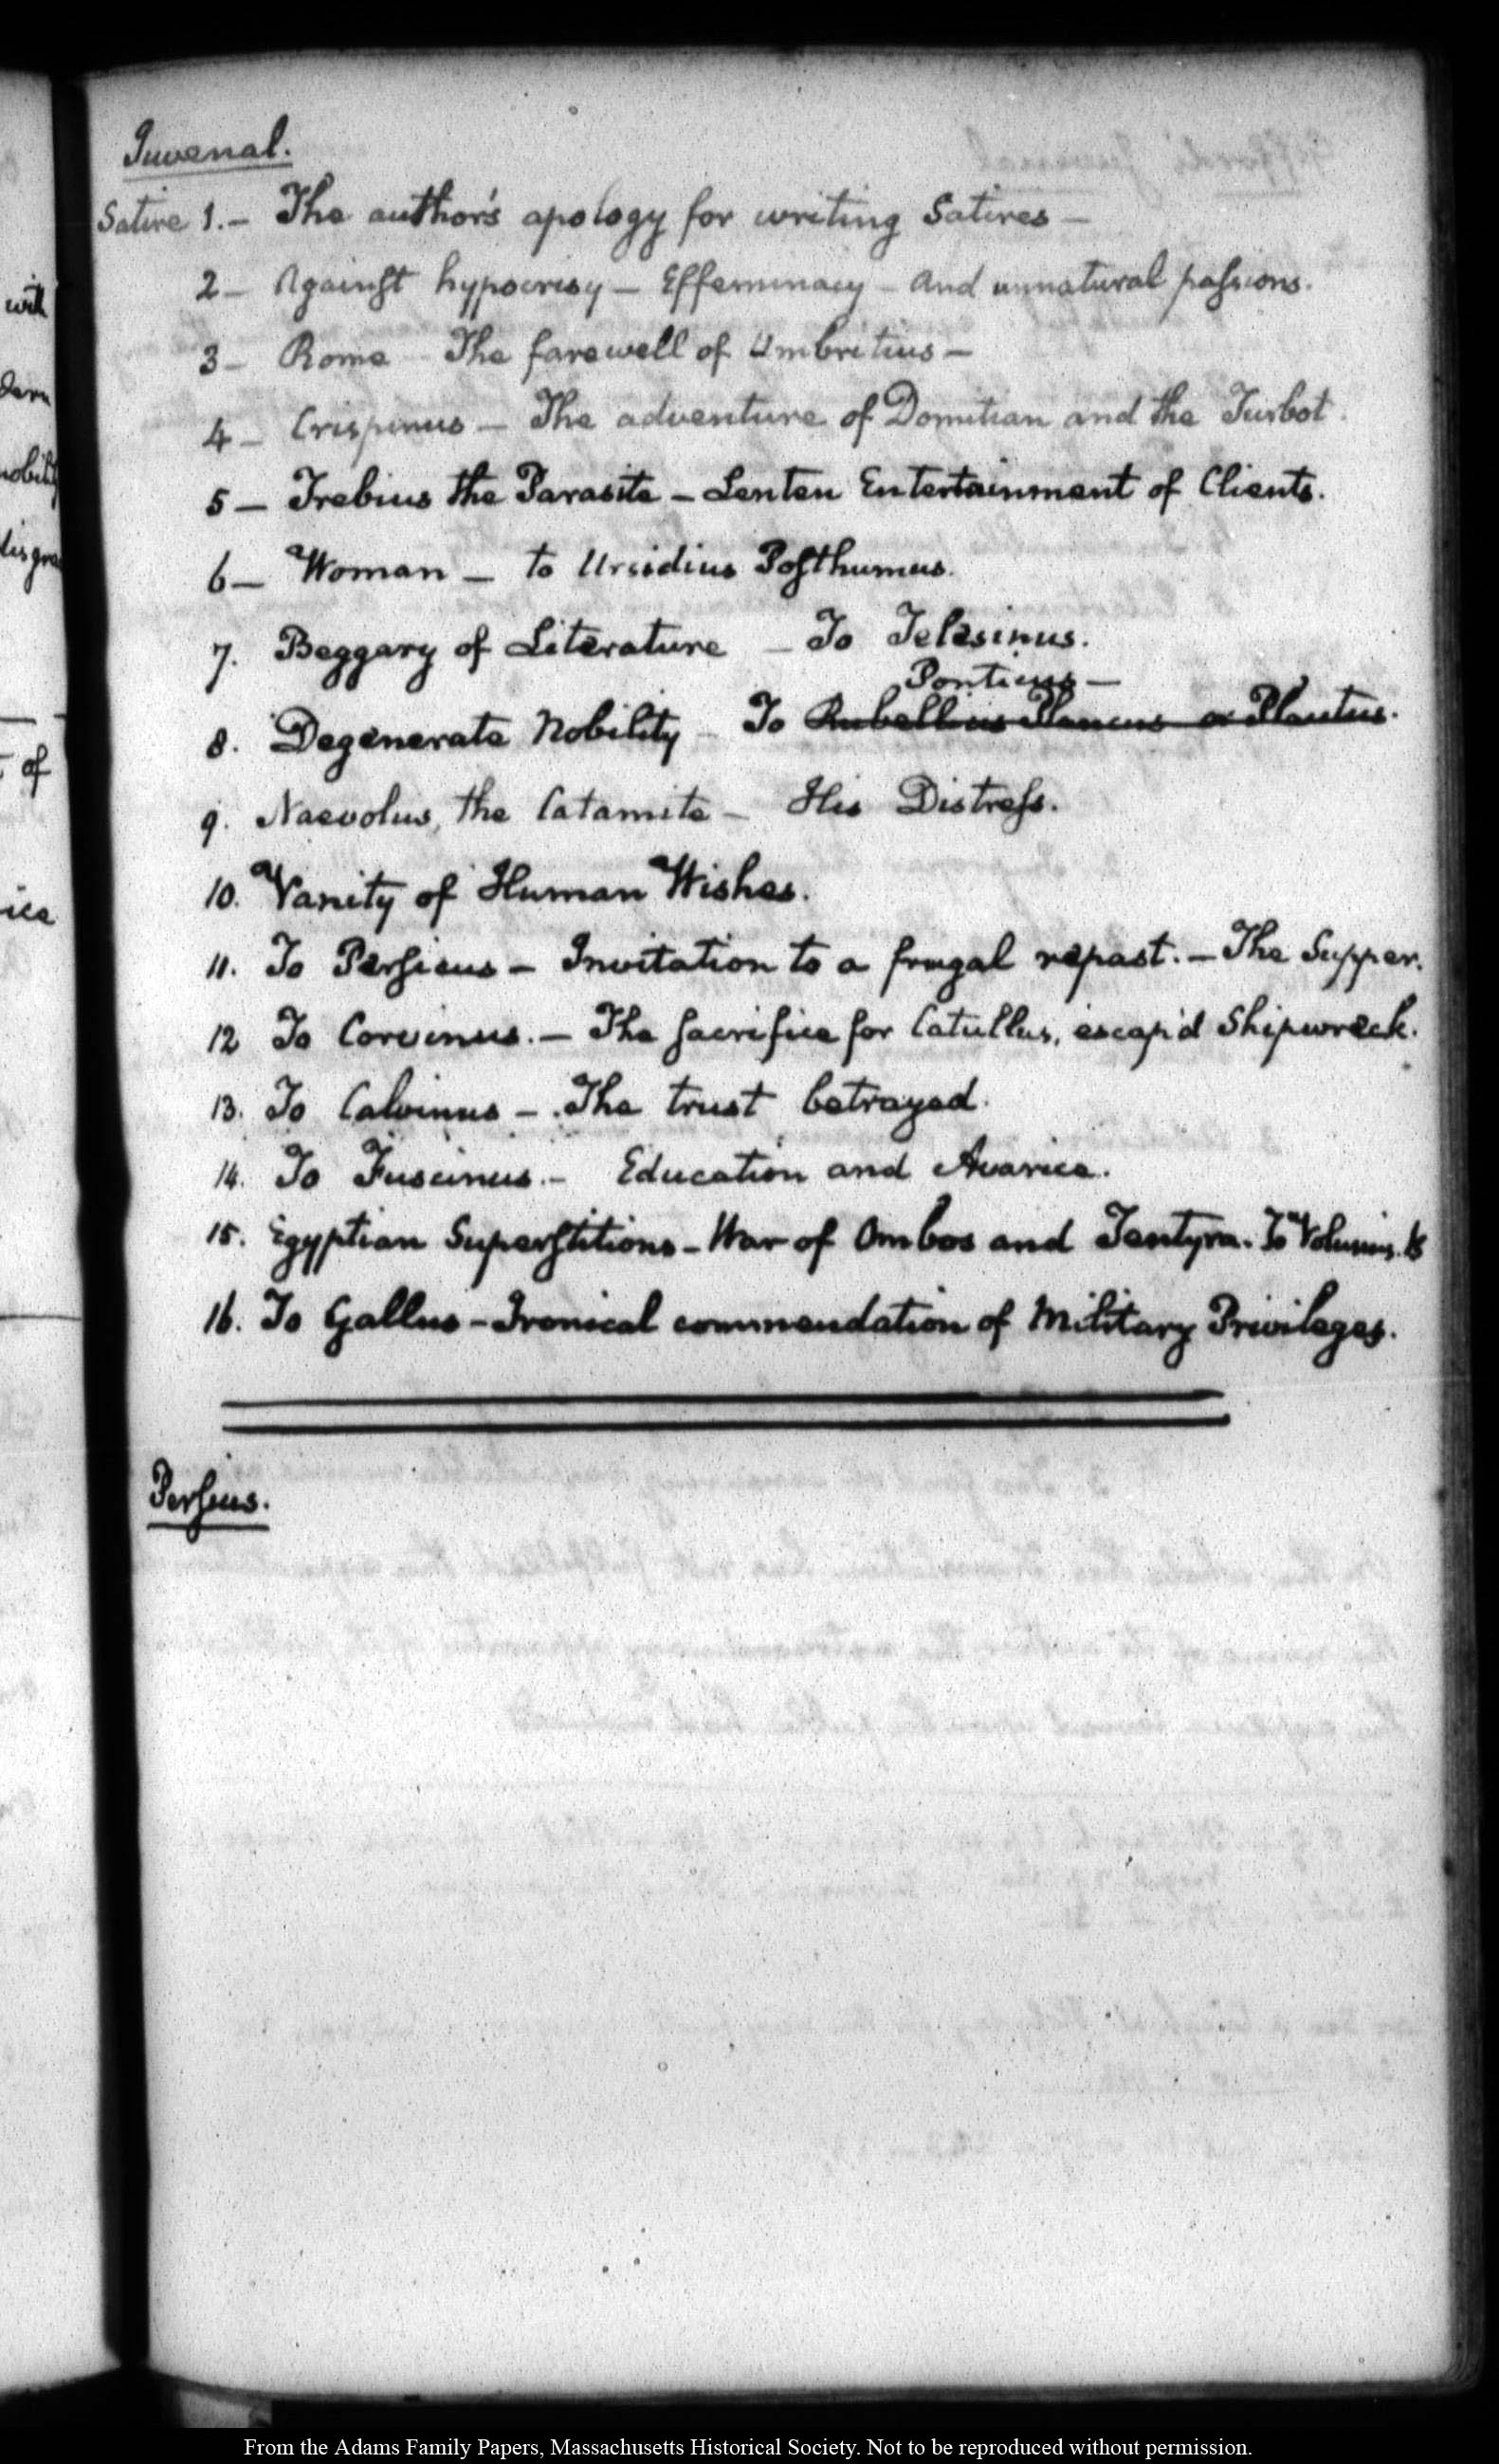 Juvenal.
Satire 1.- The author's apology for writing Satires -
2- Against hypocrisy - Effeminacy - and unnatural passions.
3- Rome - The farewell of Umbritius -
4- Crispinus - The adventure of Domitian and the Turbot.
5- Trebius the Parasite - Lenten Entertainment of Clients.
6- Woman - to Ursidius Posthumus.
7. Beggary of Literature - To Telesinus.
Ponticus -
8. Degenerate Nobility - To Rubellius Plancus or Plautus.
9. Naevolus, the Catamite - His Distress.
10. Vanity of Human Wishes.
11. To Persicus - Invitation to a frugal repast. - The Supper.
12 To Corvinus. - The sacrifice for Catullus, escap'd Shipwreck.
13. To Calvinus - The trust betrayed.
14. To Fuscinus. - Education and Avarice.
15. Egyptian Superstitions - War of Ombos and Tentyra. To Volusius.
16. To Gallus - Ironical commendation of Military Privileges.
Persius.
with
of
From the Adams Family Papers, Massachusetts Historical Society. Not to be reproduced without permission.